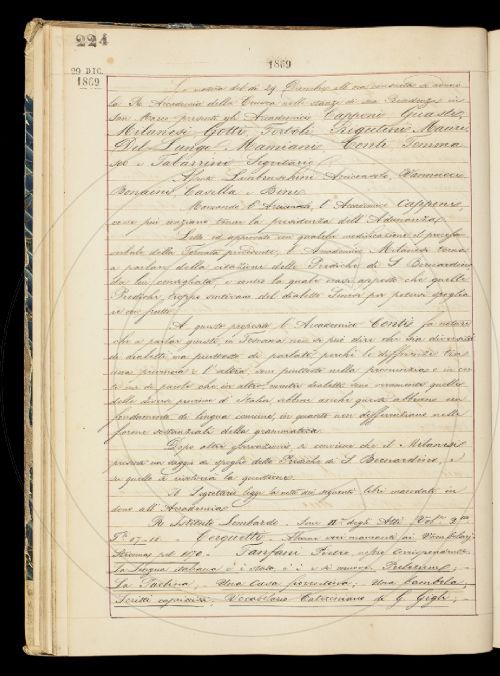 224
1869
29 DIC.
1869
La mattina del dì 29 Dicembre alle ore consuete si adunò
la R. Accademia della Crusca nelle stanze di sua Residenza in
San Marco presenti gli Accademici Capponi Guasti
Milanesi Gotti Tortoli Tregutini Mauri
Del Lungo Mamiani Conti Tommaseo
e Tabarrini Segretario.
Lambruschini Arciconsolo Vannucci
Bencini Casella e Bini
Mancando l'Arciconsolo, l'Accademico Capponi,
come più anziano tenne la presidenza dell'Adunanza.
Letto ed approvato con qualche modificazione il processo
verbale della Tornata precedente, l'Accademico Milanesi torna
a parlare della citazione delle Prediche di S. Bernardino
da lui consigliata, e contro la quale erasi opposto che quelle
Prediche, troppo sentivano del dialetto Senese per potersi spogliare
con frutto.
A questo proposito l'Accademico Conti fa notare
che a parlar giusto, in Toscana non si può dire che sia diversità
di dialetti, ma piuttosto di parlate, perchè le differenze tra
una provincia e l'altra sono piuttosto nella pronunzia e in certe
di parole che in altro; mentre dialetti son veramente quelli
delle diverse provincie d'Italia, abbian anche questi abbiano un
fondamento di lingua comune, in quanto non differiscono nelle
forme sostanziali della grammatica.
Dopo altre osservazioni, si conviene che il Milanesi
presenti un saggio di spoglio delle Prediche di S. Bernardino, e
su quello si istituirà la questione.
Il Segretario legge la nota dei seguenti libri mandati in
dono all'Accademia
R. Istituto Lombardo. degli Atti Vol.
17-18 - Cerquetti - Alcuni veri mancamenti nei Vocabolarj
Strenna pel 1870. - Fanfani Pietro
La lingua italiana c'è stata, c'è e si muove;
La Paolina; Una Casa fiorentina; Una bambola;
Scritti capricciosi; Vocabolario Cateriniano di G. Gigli; -